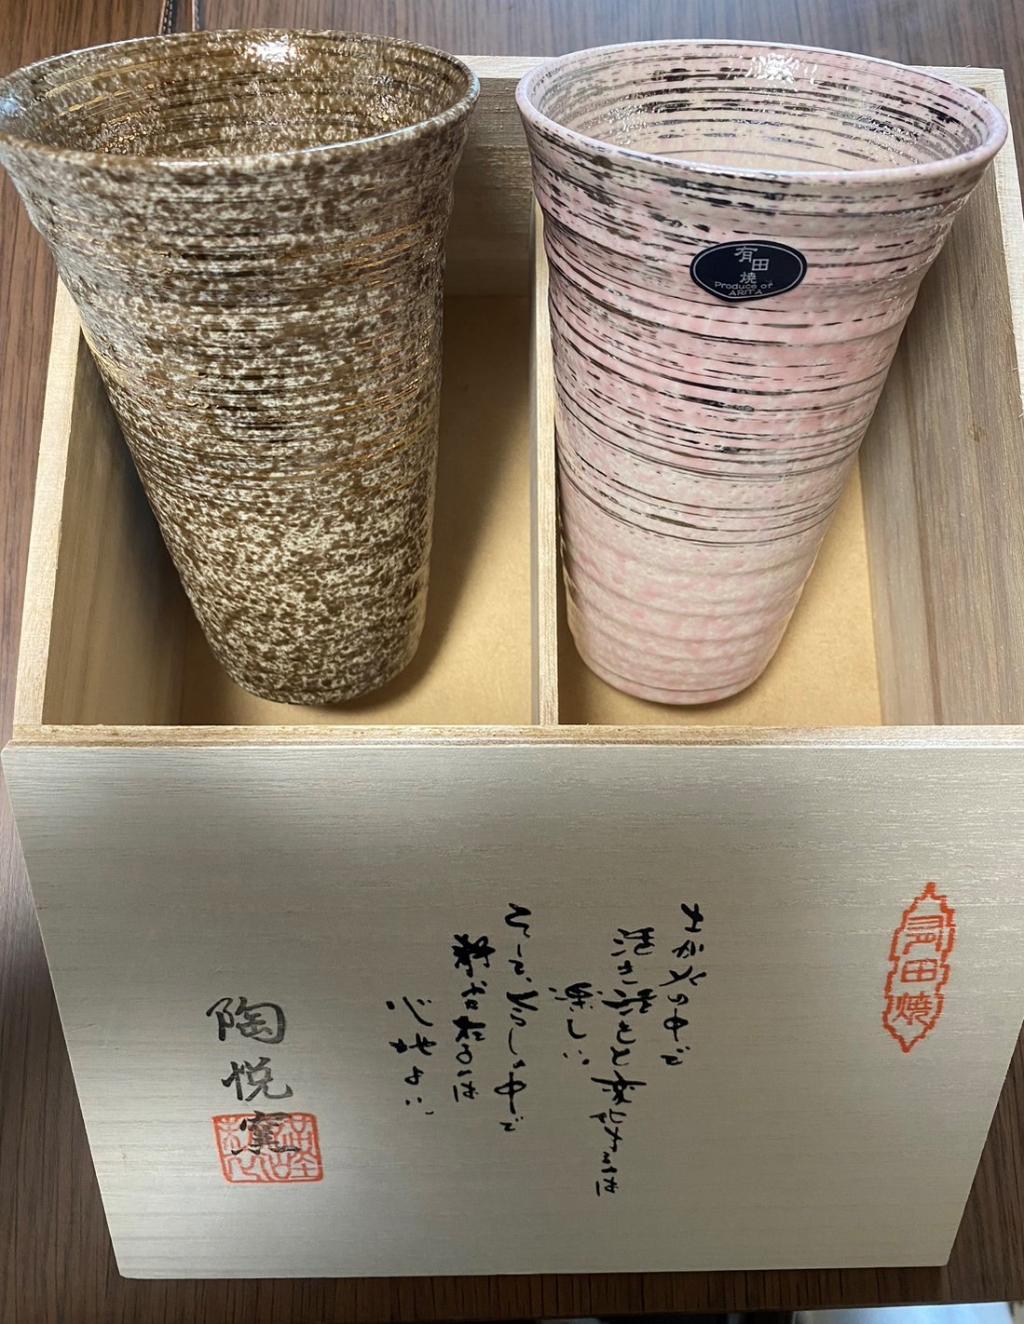 有田焼
Produce of
ARITA
有田焼
土が火の中で
活き活きと変化するは
楽しい
そして、くらしの中で
心地よい
陶悦窯